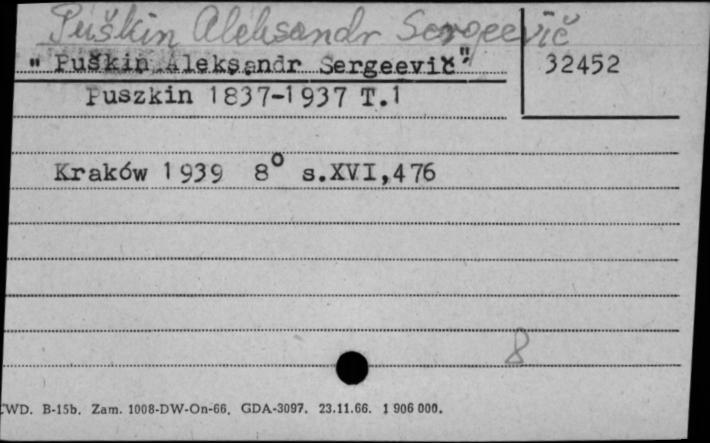 Puškin Aleksandr Sergeevič
" Puškin Aleksandr Sergeevič"
32452
Puszkin 1837-1937 T.1
Kraków 1939 8° s.XVI,476
8
CWD. B-15b. Zam. 1008-DW-On-66. GDA-3097. 23.11.66. 1 906 000.